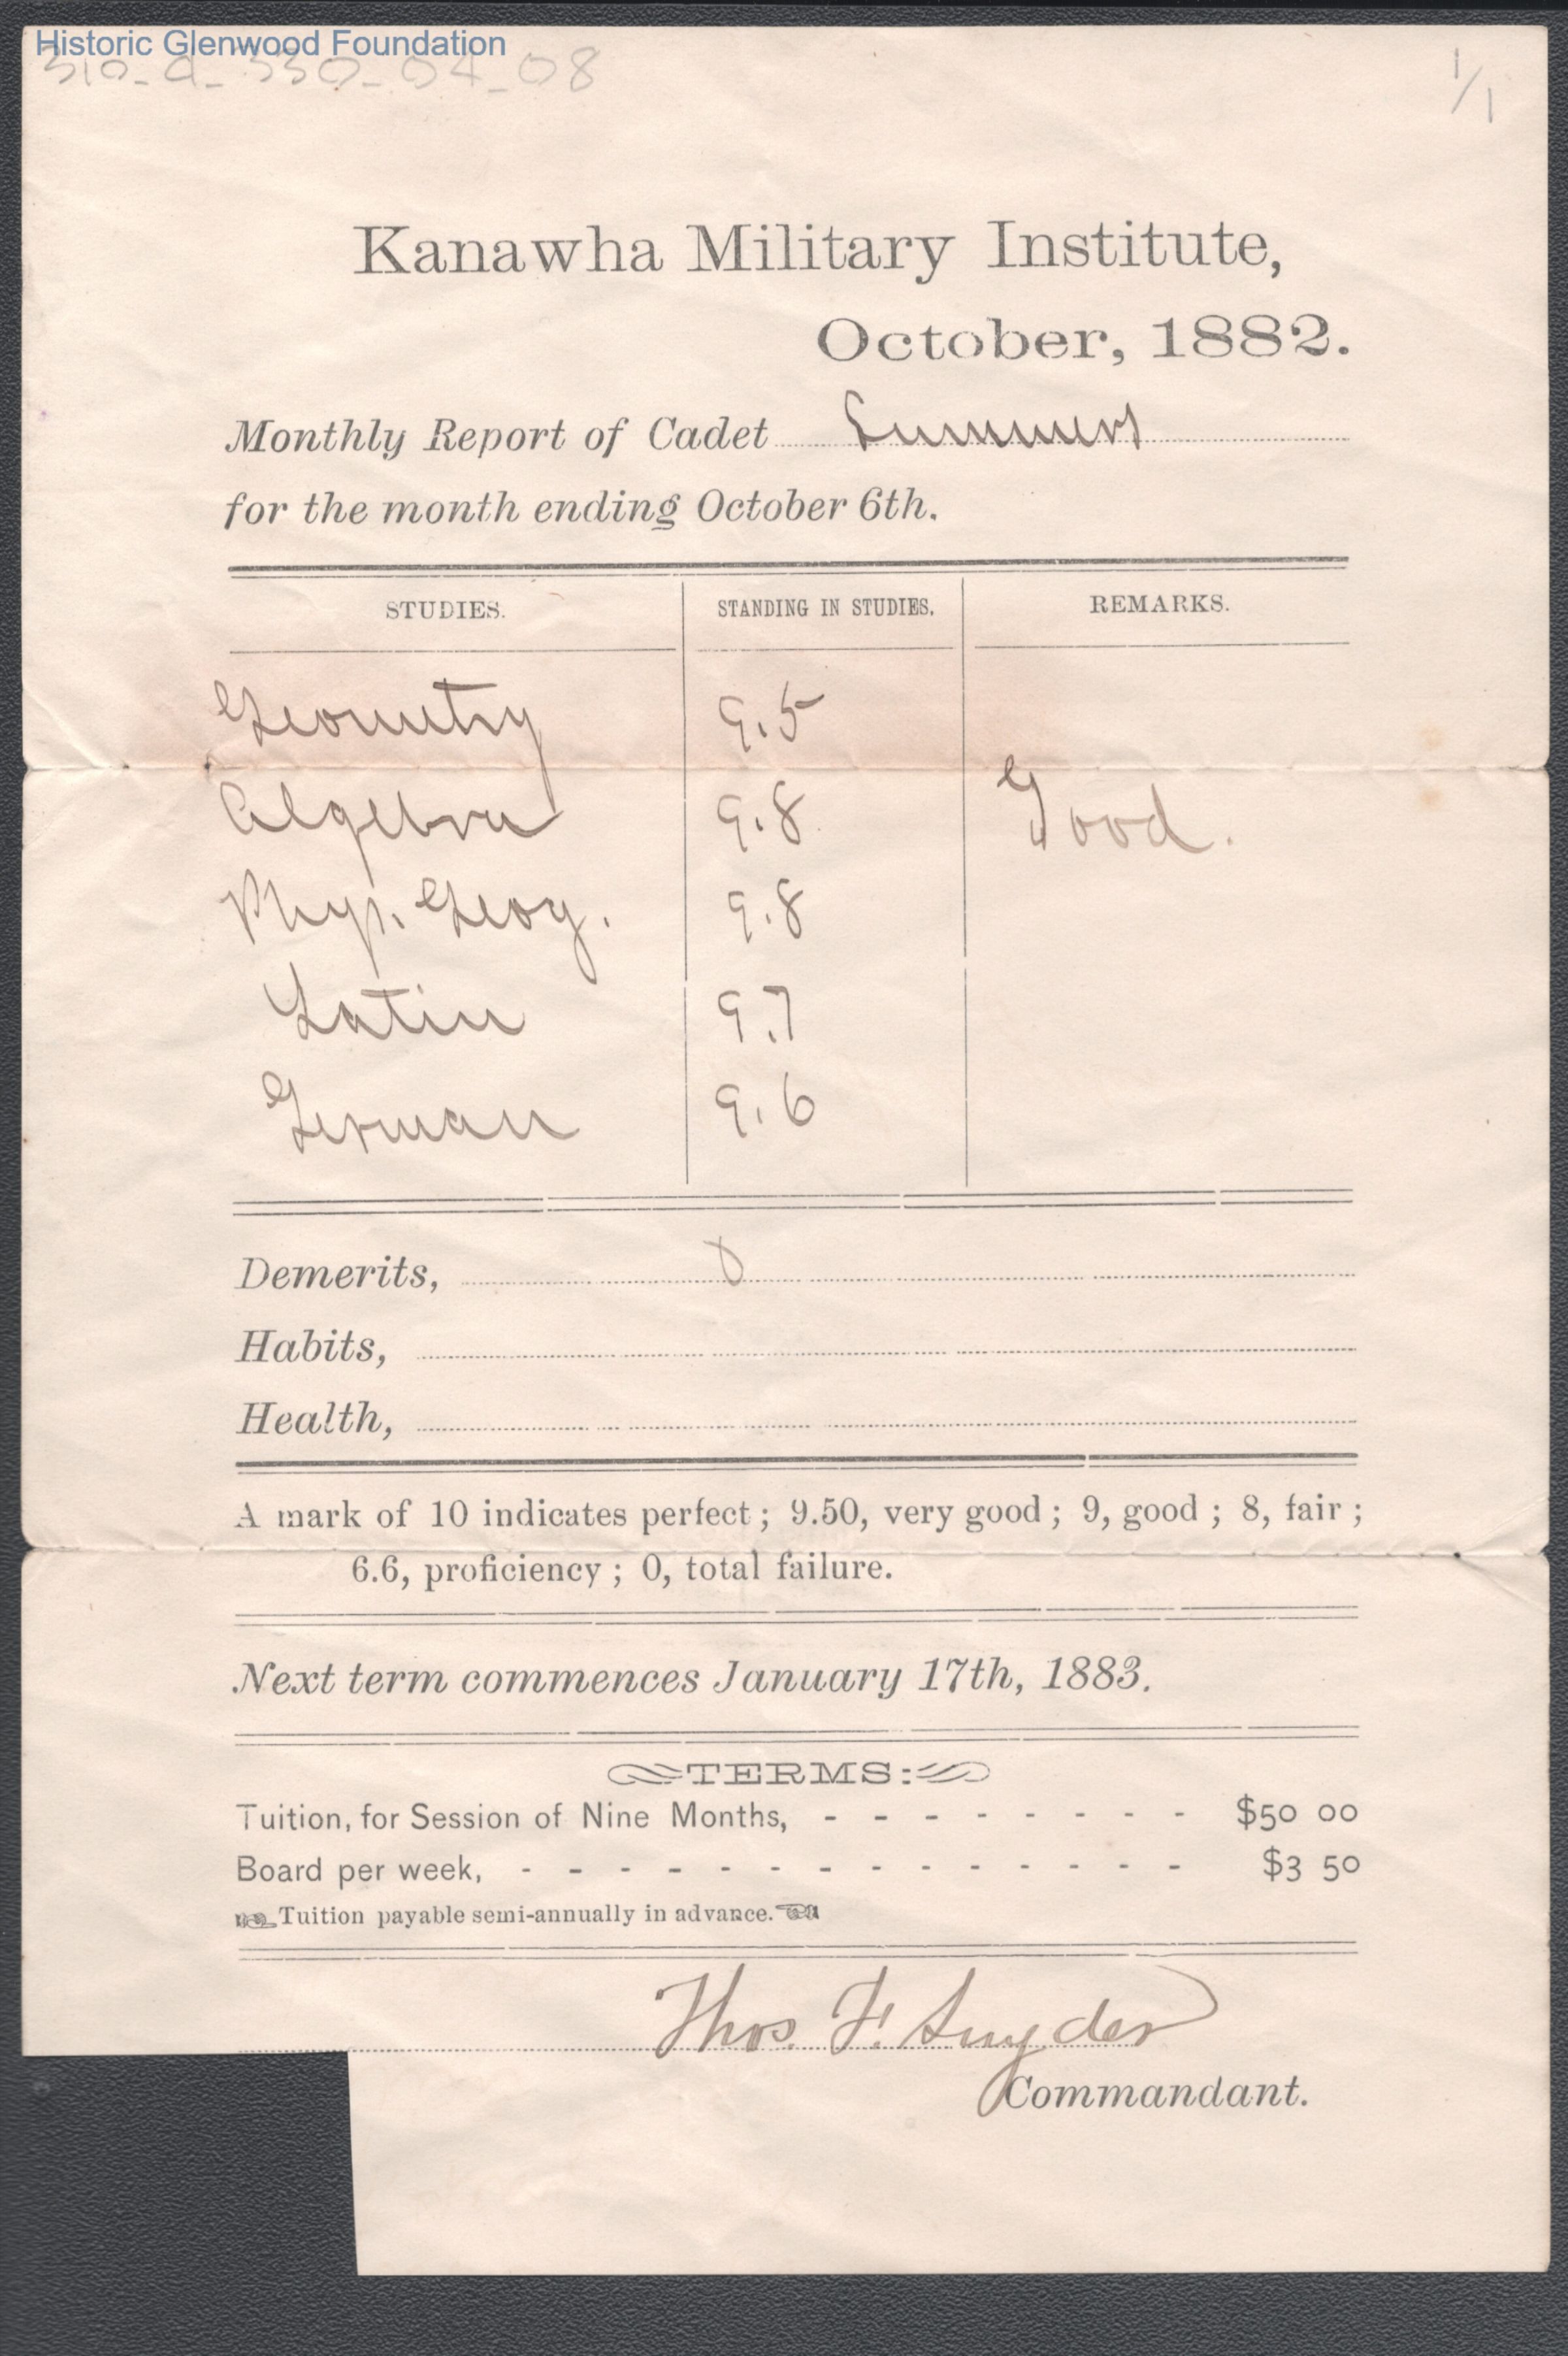 Historic Glenwood Foundation
310-a-330-04-08
1/1
Kanawha Military Institute,
October, 1882.
Monthly Report of Cadet Summers
for the month ending October 6th.
STUDIES. STANDING IN STUDIES. REMARKS.
Geometry 9.5
Algebra 9.8 Good.
Phys. Geog. 9.8
Latin 9.7
German 9.6
Demerits, 0
Habits,
Health,
A mark of 10 indicates perfect; 9.50, very good; 9, good; 8, fair;
6.6, proficiency; 0, total failure.
Next term commences January 17th, 1883.
TERMS:
Tuition, for Session of Nine Months, - - - - - - - - $50 00
Board per week, - - - - - - - - - - - - - - $3 50
Tuition payable semi-annually in advance.
Thos. F. Snyder
Commandant.